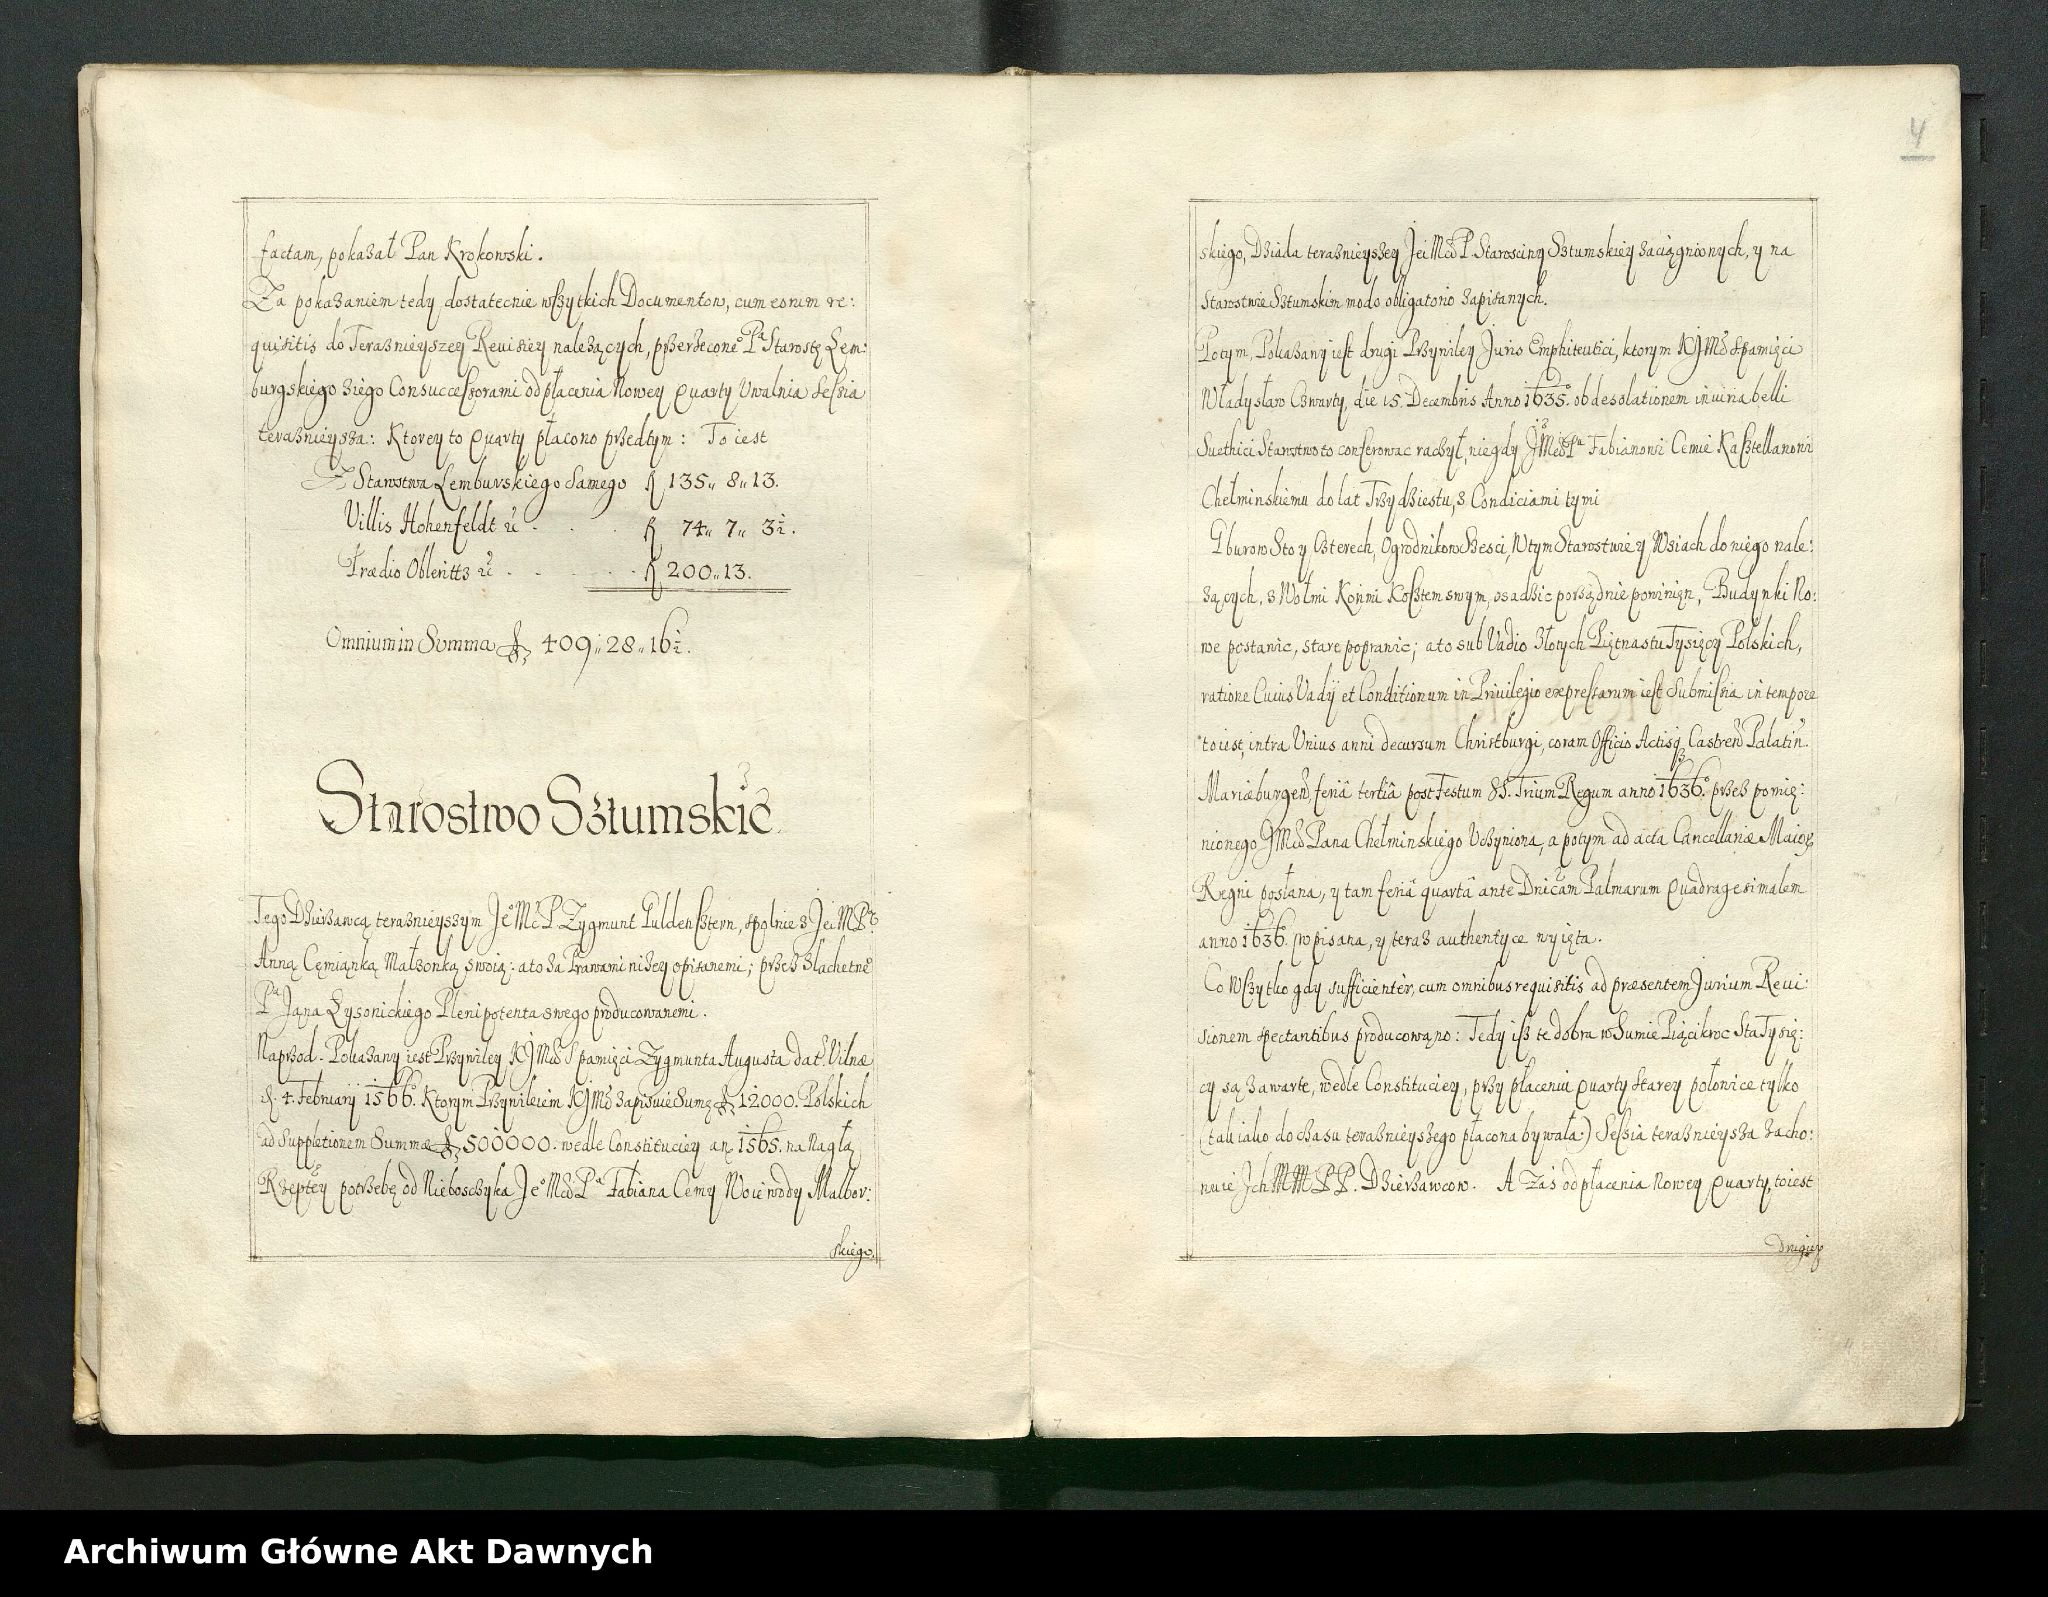 factam, pokazał Pan Krokowski.
Za pokazaniem tedy dostatecnie wszytkich Documentow, cum eorum re:
quisitis do Teraznieyszey Reuisiey należących, przerzecone° Pª Starostę Lem:
burgskiego z iego Consuccessorami od płacenia Nowey Quarty Uwalnia Sessia
teraznieysza: Ktorey to Quarty płacono przedtym: To iest
Z Starostwa Lemburskiego Samego fl 135 „ 8 „ 13.
Villis Hohenfeldt &c . . . fl 74 „ 7 „ 3½.
Prædio Obleritz &c . . . . fl 200 „ 13.
Omnium in Summa fl 409 „ 28 „ 16½.
Starostwo Sztumskie
Tego Dzierzawcą teraznieyszym Je° Mć P Zygmunt Guldensztern, spolnie z Jei M Pª
Anną Cemianką Małzonką swoią: a to za Prawami nizey opisanemi; przez Slachetne°
Pª Jana Łysonickiego Plenipotenta swego producowanemi.
Naprzod. Pokazany iest Przywiley KJMci S pamięci Zygmunta Augusta dat. Vilnæ
d. 4. February 1566. Ktorym Przywileiem KJMć zapisuie Sumę fl 12000. Polskich
ad Suppletionem Summæ fl 500000. wedle Constituciey an. 1565. na Nagłą
Rzeptey potrzebę od Nieboszczyka Je° Mći Pª Fabiana Cemy Woiewody Malbor:
skiego.
4
skiego, Dziada teraznieyszey Jei Mći P. Starosciny Sztumskiey zaciągnionych, y na
Starostwie Sztumskim modo obligatorio zapisanych.
Potym, Pokazany iest drugi Przywiley Juris Emphiteutici, ktorym KJMć S pamięci
Władysław Czwarty, die 15. Decembris Anno 1635. ob desolationem iniuria belli
Suethici Starostwo to conferowac raczył, niegdy J°Mći Pª Fabianowi Cemie Kasztellanowi
Chełminskiemu do lat Trzydziestu, z Condiciami tymi
Gburow Sto y Czterech, Ogrodnikow Szesci, w tym Starostwie y Wsiach do niego nale:
zących, z Wołmi Końmi Kosztem swym, osadzic porządnie powinięn, Budynki No:
we postawic, stare poprawic; a to sub Vadio Złotych Piętnastu Tysięcy Polskich,
ratione Cuius Vadÿ et Conditionum in Priuilegio expressarum iest Submissia in tempore
to iest, intra Unius anni decursum Christburgi, coram Officio Actisq3 Castren Palatin.
Mariæburgen, feriâ tertiâ post Festum SS. Trium Regum anno 1636° przez pomię:
nionego JMći Pana Chełminskiego Uczyniona, a potym ad acta Cancellariæ Maior
Regni posłana, y tam feriâ quartâ ante Dnicam Palmarum Quadragesimalem
anno 1636° wpisana, y teraz authentyce wyięta.
Co Wszytko gdy sufficientèr, cum omnibus requisitis ad præsentem Jurium Reui:
sionem spectantibus producowano: Tedy isz te dobra w Sumie Pięcikroc Sta Tysię:
cy są zawarte, wedle Constituciey, przy płaceniu Quarty Starey połowice tylko
(tak iako do czasu teraznieyszego płacona bywała:) Sessia teraznieysza zacho:
wuie Jch MM PP. Dzierzawcow. A Zaś od płacenia Nowey Quarty, to iest
Drugiey
Archiwum Główne Akt Dawnych